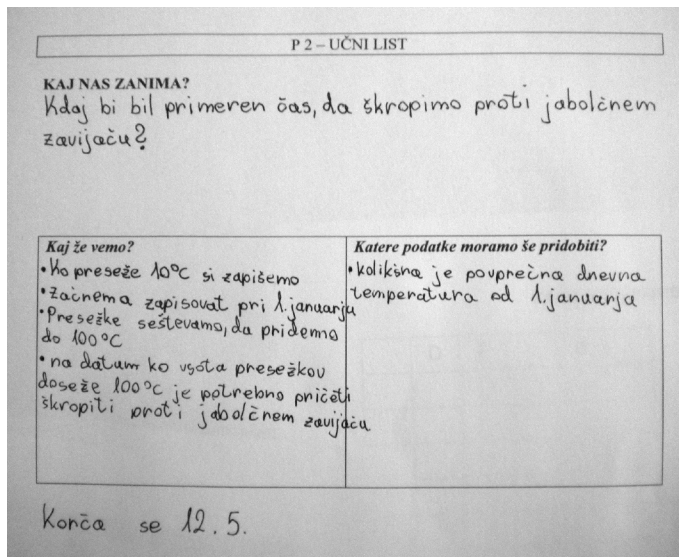 P 2 – UČNI LIST
KAJ NAS ZANIMA?
Kdaj bi bil primeren čas, da škropimo proti jabolčnem
zavijaču?
Kaj že vemo?
• Ko preseže 10°C si zapišemo
• začnema zapisovat pri 1. januarju
• Presežke seštevamo, da pridemo
do 100°C
• na datum ko vsota presežkov
doseže 100°C je potrebno pričeti
škropiti proti jabolčnem zavijaču
Katere podatke moramo še pridobiti?
• kolikšna je povprečna dnevna
temperatura od 1. januarja
Konča se 12. 5.